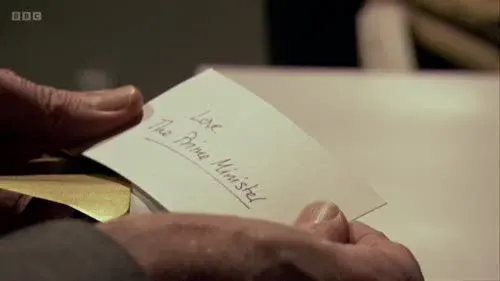 BBC
Love
The Prime Minister